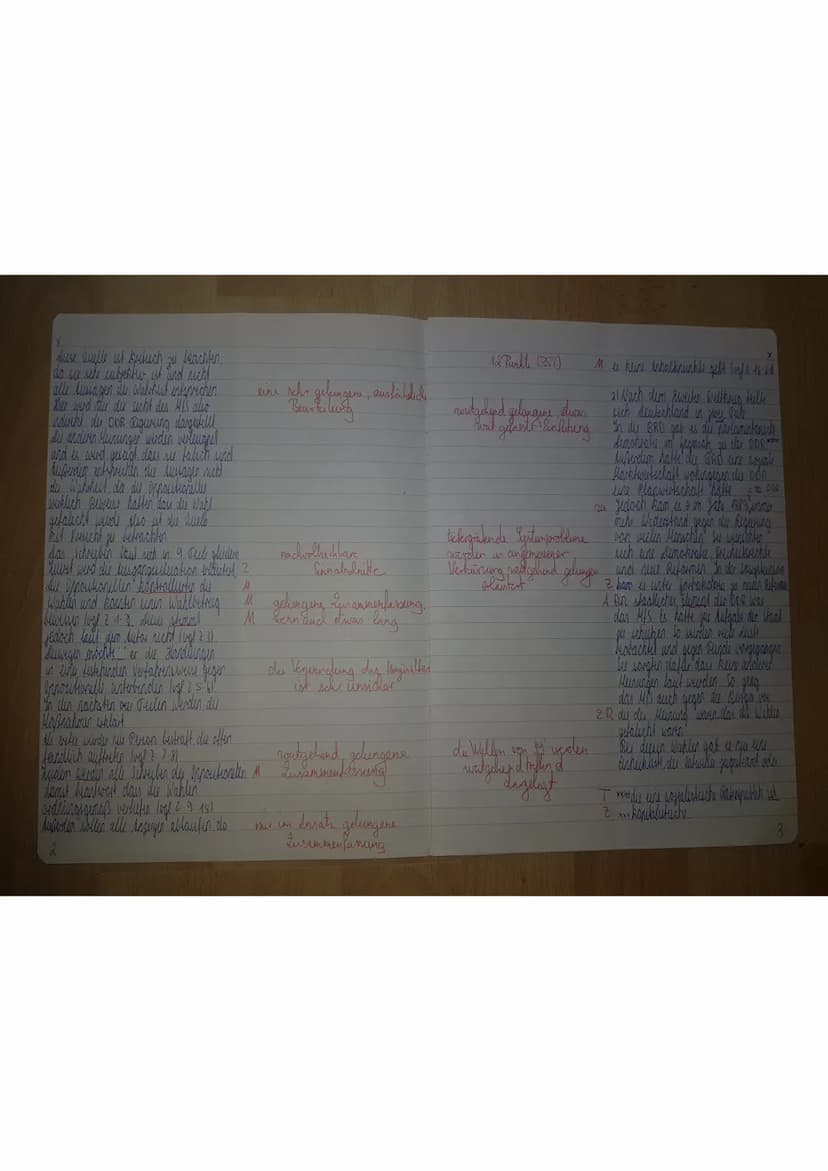 Diese Quelle ist kritisch zu beachten
da sie sehr subjektiv ist und nicht
alle Aussagen der Wahrheit entsprechen
Hier wird nur die Sicht des MfS also
indirekt die DDR-Regierung dargestellt
die anderen Meinungen werden verleugnet
und es wird gesagt dass sie falsch sind
Außerdem entsprechen die Aussagen nicht
der Wahrheit da die Oppositionellen
wirklich Beweise hatten das die Wahl
gefälscht wurde also ist die Quelle
mit Vorsicht zu betrachten
das Schreiben lässt sich in 9 Teile gliedern
Zuerst wird die Ausgangssituation erläutert
die Oppositionellen kontrollierten die
Wahlen und konnten einen Wahlbetrug
beweisen (vgl Z 1-3) dieses stimmt
jedoch laut dem Autor nicht (vgl Z 3)
Deswegen möchte er die Handlungen
in eine Verfahrensweise gegen
Oppositionelle unterbinden (vgl Z 5-6)
In den nächsten Teilen werden die
Maßnahmen erklärt
werden alle Schreiben der Oppositionellen
damit beantwort das die Wahlen
ordnungsgemäß verliefen (vgl Z 9-15)
Außerdem sollen alle Anzeigen ablaufen da
2
eine sehr gelungene, ausführliche
Beurteilung
Z
nachvollziehbare
Sinnabschnitte
M
M gelungene Zusammenfassung,
M wenn auch etwas lang
die Verwendung des Konjunktivs
ist sehr unsicher
M weitgehend gelungene
Zusammenfassung
nur im Ansatz gelungene
Zusammenfassung
12 Punkte (35%)
weitgehend gelungene, etwas
weit gefasste Einleitung
Systemprobleme
werden in angemessener
Verkürzung weitgehend gelungen
erläutert
die Wahlen von 89 werden
weitgehend treffend
dargelegt
M es keine Anhaltspunkte gibt (vgl Z 16-18)
2) Nach dem zweiten Weltkrieg teilte
sich Deutschland in zwei Teile
In der BRD gab es die parlamentarische
Demokratie im Gegensatz zu der DDR***
Außerdem hatte die BRD eine soziale
Marktwirtschaft wohingegen die DDR
eine Planwirtschaft hatte
Jedoch kam es im Jahr immer
mehr Widerstand gegen die Regierung
von vielen Menschen Sie wünschten
sich eine demokratie
und neue Reformen In der Sowjetunion
Z kam es unter Gorbatschow zu neuen Reformen
A Ein staatliches Element der DDR war
das MfS Es hatte zur Aufgabe den Staat
zu schützen So wurden viele Leute
beobachtet und gegen vorgegangen
Sie sorgten dafür dass keine anderen
Meinungen laut wurden So ging
das MfS auch gegen die Bürger vor
ZR die der Meinung waren das die Wahlen
gefälscht waren
Bei diesen Wahlen gab es nur eine
Einheitsliste der entweder zugestimmt oder
T ***die eine sozialistische war
Z ***kapitalistische
3